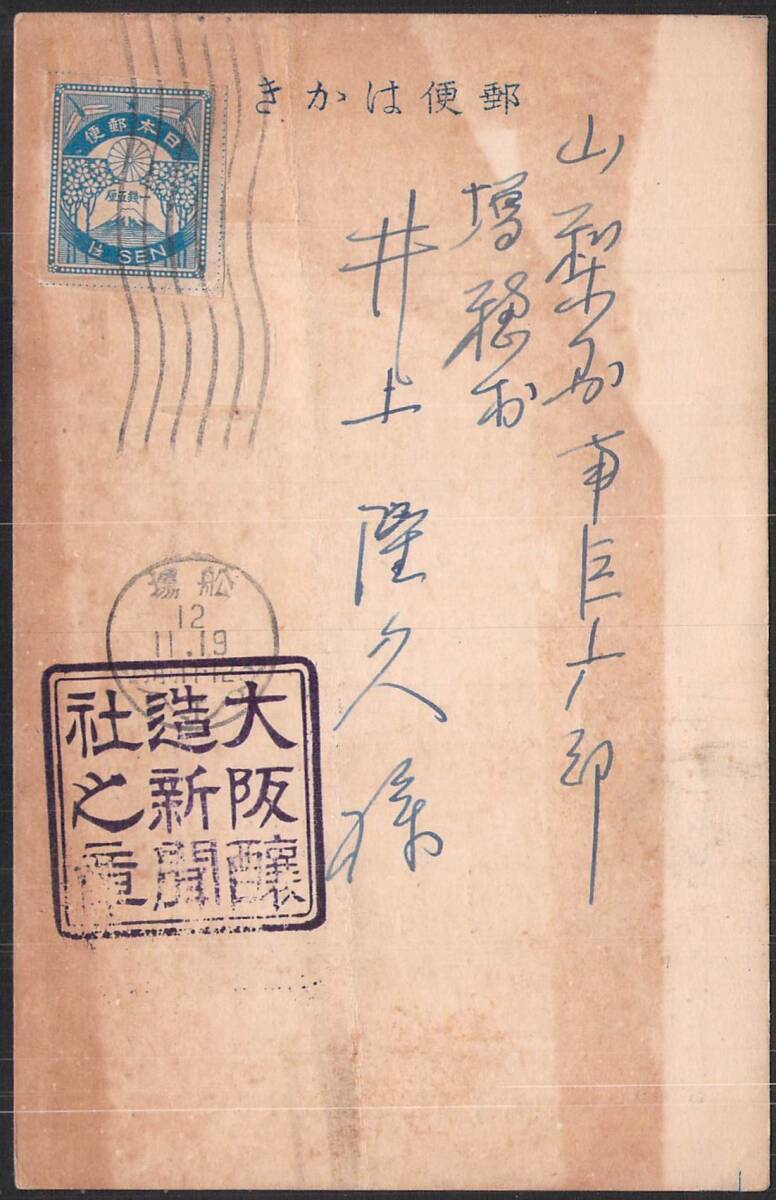 郵便はかき
山梨縣南巨广郡
増穂村
井上隆久様
日本郵便
一銭五厘
1½ SEN
船場
12
11.19
大阪醸
造新聞
社之章